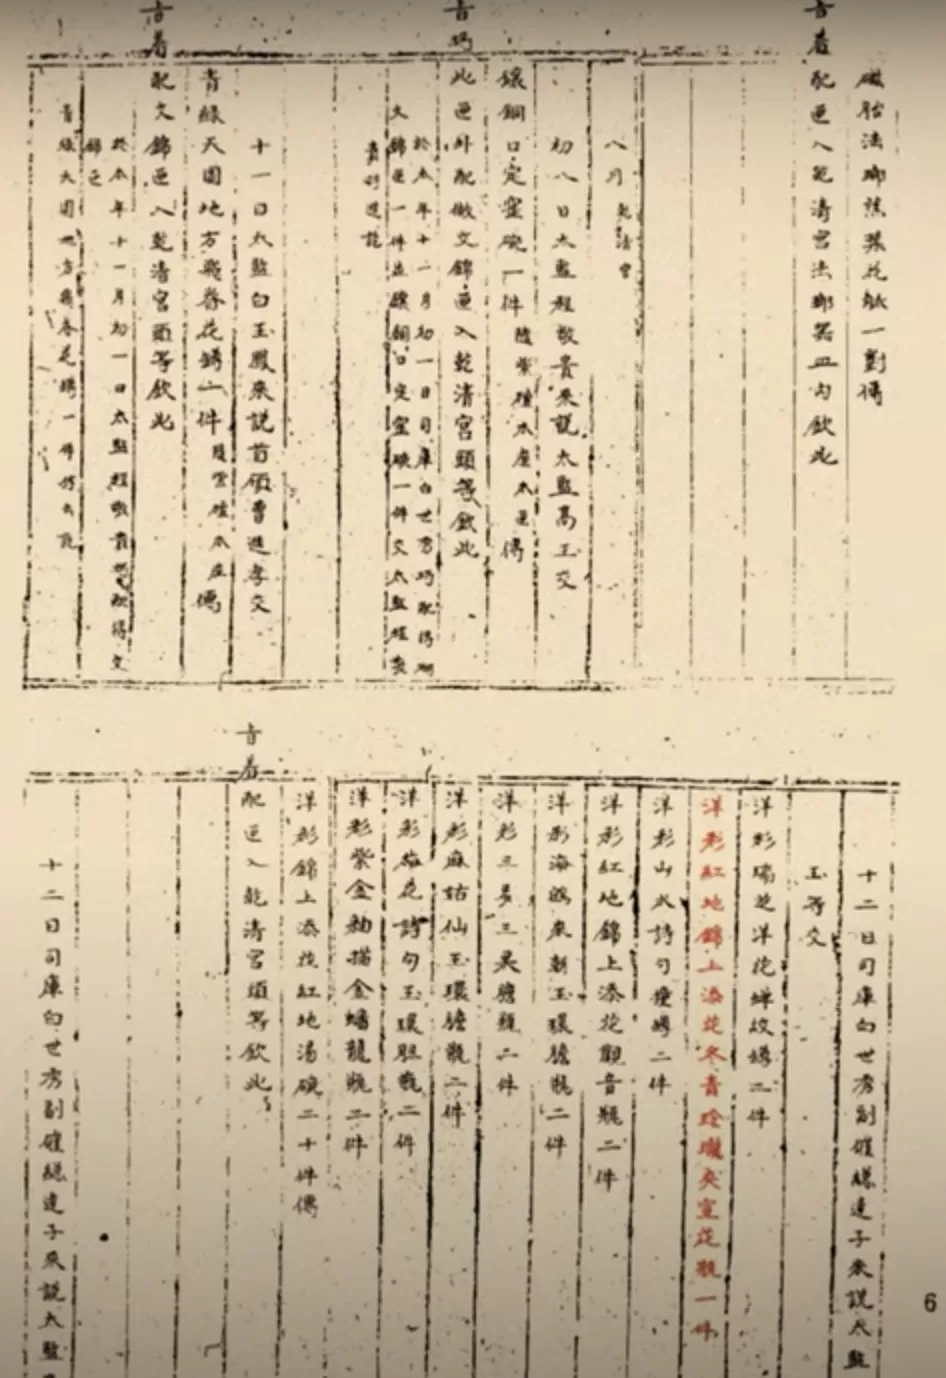 磁胎法瑯誌𦬆花觚一對傳
旨着配匣入乾清宮法瑯器皿內欽此
八月 乾清宮
初八日太監程敬貴來說太監高玉交
鑲銅口定窰碗一件 隨紫檀木座木匣傳
旨将此匣外配做文錦匣入乾清宮頭等欽此
於本年十一月初一日司庫白世秀将配得
文錦匣一件並鑲銅口定窰碗一件交太監程敬
貴訖
十一日太監白玉鳳來說首領曹進孝交
青綠天圓地方飛脊花罇一件 隨紫檀木座傳
旨着配文錦匣入乾清宮頭等欽此
於本年十一月初一日太監程敬貴将配得文
錦匣
青綠天圓地方飛脊花罇一件持去訖
十二日司庫白世秀副催總達子來說太監
玉等交
洋彩瑞芝洋花蟬紋罇二件
洋彩紅地錦上添花冬青玲瓏夾宣花瓶一件
洋彩山水詩句瘦罇二件
洋彩紅地錦上添花觀音瓶二件
洋彩海鶴來朝玉環膽瓶二件
洋彩三多三果膽瓶二件
洋彩麻姑仙玉環膽瓶二件
洋彩菊花詩句玉環胆瓶二件
洋彩紫金釉描金蟠龍瓶二件
洋彩錦上添花紅地湯碗二十件傳
旨着配匣入乾清宮頭等欽此
十二日司庫白世秀副催總達子來說太監
6